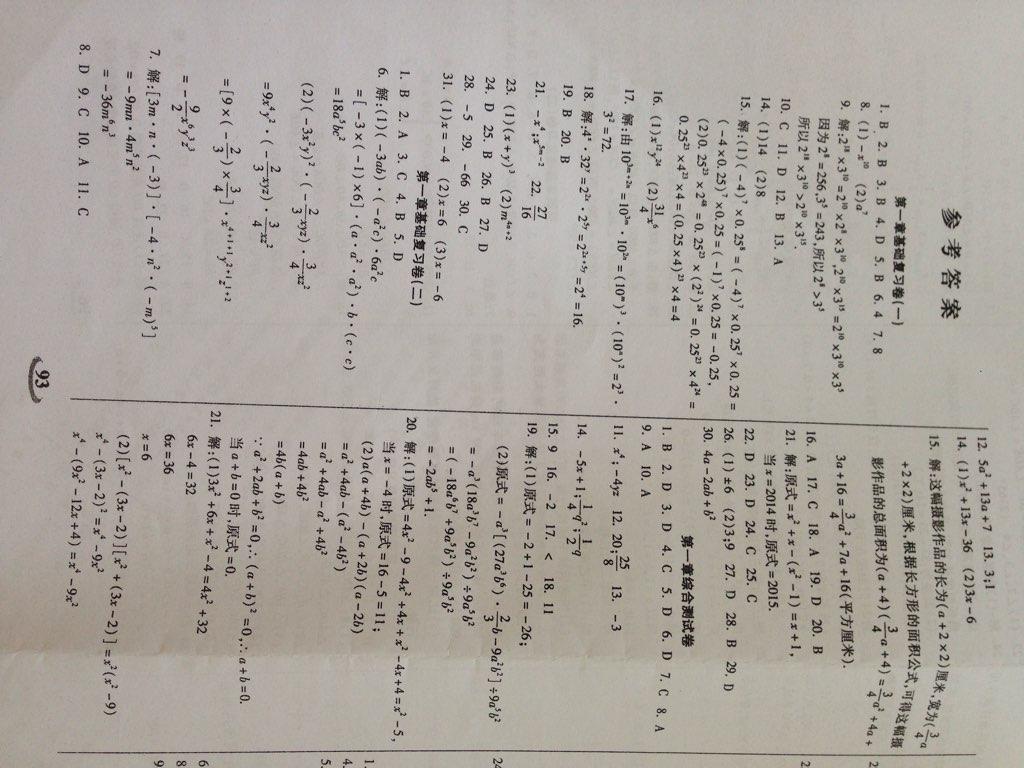 参考答案
第一章基础复习卷(一)
1. B 2. B 3. B 4. D 5. B 6. 4 7. 8
8. (1) -x¹⁰ (2)a⁷
9. 解:2¹⁸×3¹⁰=2¹⁰×2⁸×3¹⁰,2¹⁰×3¹⁵=2¹⁰×3¹⁰×3⁵
因为2⁸=256,3⁵=243,所以2⁸>3⁵
所以2¹⁸×3¹⁰>2¹⁰×3¹⁵.
10. C 11. D 12. B 13. A
14. (1)14 (2)8
15. 解:(1)(-4)⁷×0.25⁸=(-4)⁷×0.25⁷×0.25=
(-4×0.25)⁷×0.25=(-1)⁷×0.25=-0.25,
(2)0.25²³×2⁴⁸=0.25²³×(2²)²⁴=0.25²³×4²⁴=
0.25²³×4²³×4=(0.25×4)²³×4=4
16. (1)x¹²y²⁴ (2)31/4x⁶
17. 解:由10³ᵐ⁺²ⁿ=10³ᵐ·10²ⁿ=(10ᵐ)³·(10ⁿ)²=2³·
3²=72.
18. 解:4ˣ·32ʸ=2²ˣ·2⁵ʸ=2²ˣ⁺⁵ʸ=2⁴=16.
19. B 20. B
21. -x⁴;x⁵ᵐ⁻² 22. 27/16
23. (1)(x+y)³ (2)m⁴ᵃ⁺²
24. D 25. B 26. B 27. D
28. -5 29. -66 30. C
31. (1)x=-4 (2)x=6 (3)x=-6
第一章基础复习卷(二)
1. B 2. A 3. C 4. B 5. D
6. 解:(1)(-3ab)·(-a²c)·6a²c
=[-3×(-1)×6]·(a·a²·a²)·b·(c·c)
=18a⁵bc²
(2)(-3x²y)²·(-2/3xyz)·3/4xz²
=9x⁴y²·(-2/3xyz)·3/4xz²
=[9×(-2/3)×3/4]·x⁴⁺¹⁺¹y²⁺¹z¹⁺²
=-9/2x⁶y³z³
7. 解:[3m·n·(-3)]·[-4·n²·(-m)⁵]
=-9mn·4m⁵n²
=-36m⁶n³
8. D 9. C 10. A 11. C
93
12. 5a²+13a+7 13. 3;1
14. (1)x²+13x-36 (2)3x-6
15. 解:这幅摄影作品的长为(a+2×2)厘米,宽为(3/4a
+2×2)厘米,根据长方形的面积公式,可得这幅摄
影作品的总面积为(a+4)(3/4a+4)=3/4a²+4a+
3a+16=3/4a²+7a+16(平方厘米).
16. A 17. C 18. A 19. D 20. B
21. 解:原式=x²+x-(x²-1)=x+1,
当x=2014时,原式=2015.
22. D 23. D 24. C 25. C
26. (1)±6 (2)3;9 27. D 28. B 29. D
30. 4a-2ab+b²
第一章综合测试卷
1. B 2. D 3. D 4. C 5. D 6. D 7. C 8. A
9. A 10. A
11. x⁴;-4yz 12. 20;25/8 13. -3
14. -5x+1;1/4q²;1/2q
15. 9 16. -2 17. < 18. 11
19. 解:(1)原式=-2+1-25=-26;
(2)原式=-a³[(27a³b⁶)·2/3b-9a²b²]÷9a⁵b²
=-a³(18a³b⁷-9a²b²)÷9a⁵b²
=(-18a⁶b⁷+9a⁵b²)÷9a⁵b²
=-2ab⁵+1.
20. 解:(1)原式=4x²-9-4x²+4x+x²-4x+4=x²-5,
当x=-4时,原式=16-5=11;
(2)a(a+4b)-(a+2b)(a-2b)
=a²+4ab-(a²-4b²)
=a²+4ab-a²+4b²
=4ab+4b²
=4b(a+b)
∵a²+2ab+b²=0,∴(a+b)²=0,∴a+b=0.
当a+b=0时,原式=0.
21. 解:(1)3x²+6x+x²-4=4x²+32
6x-4=32
6x=36
x=6
(2)[x²-(3x-2)][x²+(3x-2)]=x²(x²-9)
x⁴-(3x-2)²=x⁴-9x²
x⁴-(9x²-12x+4)=x⁴-9x²
2
2
24
1.
4.
5.
6
8
9